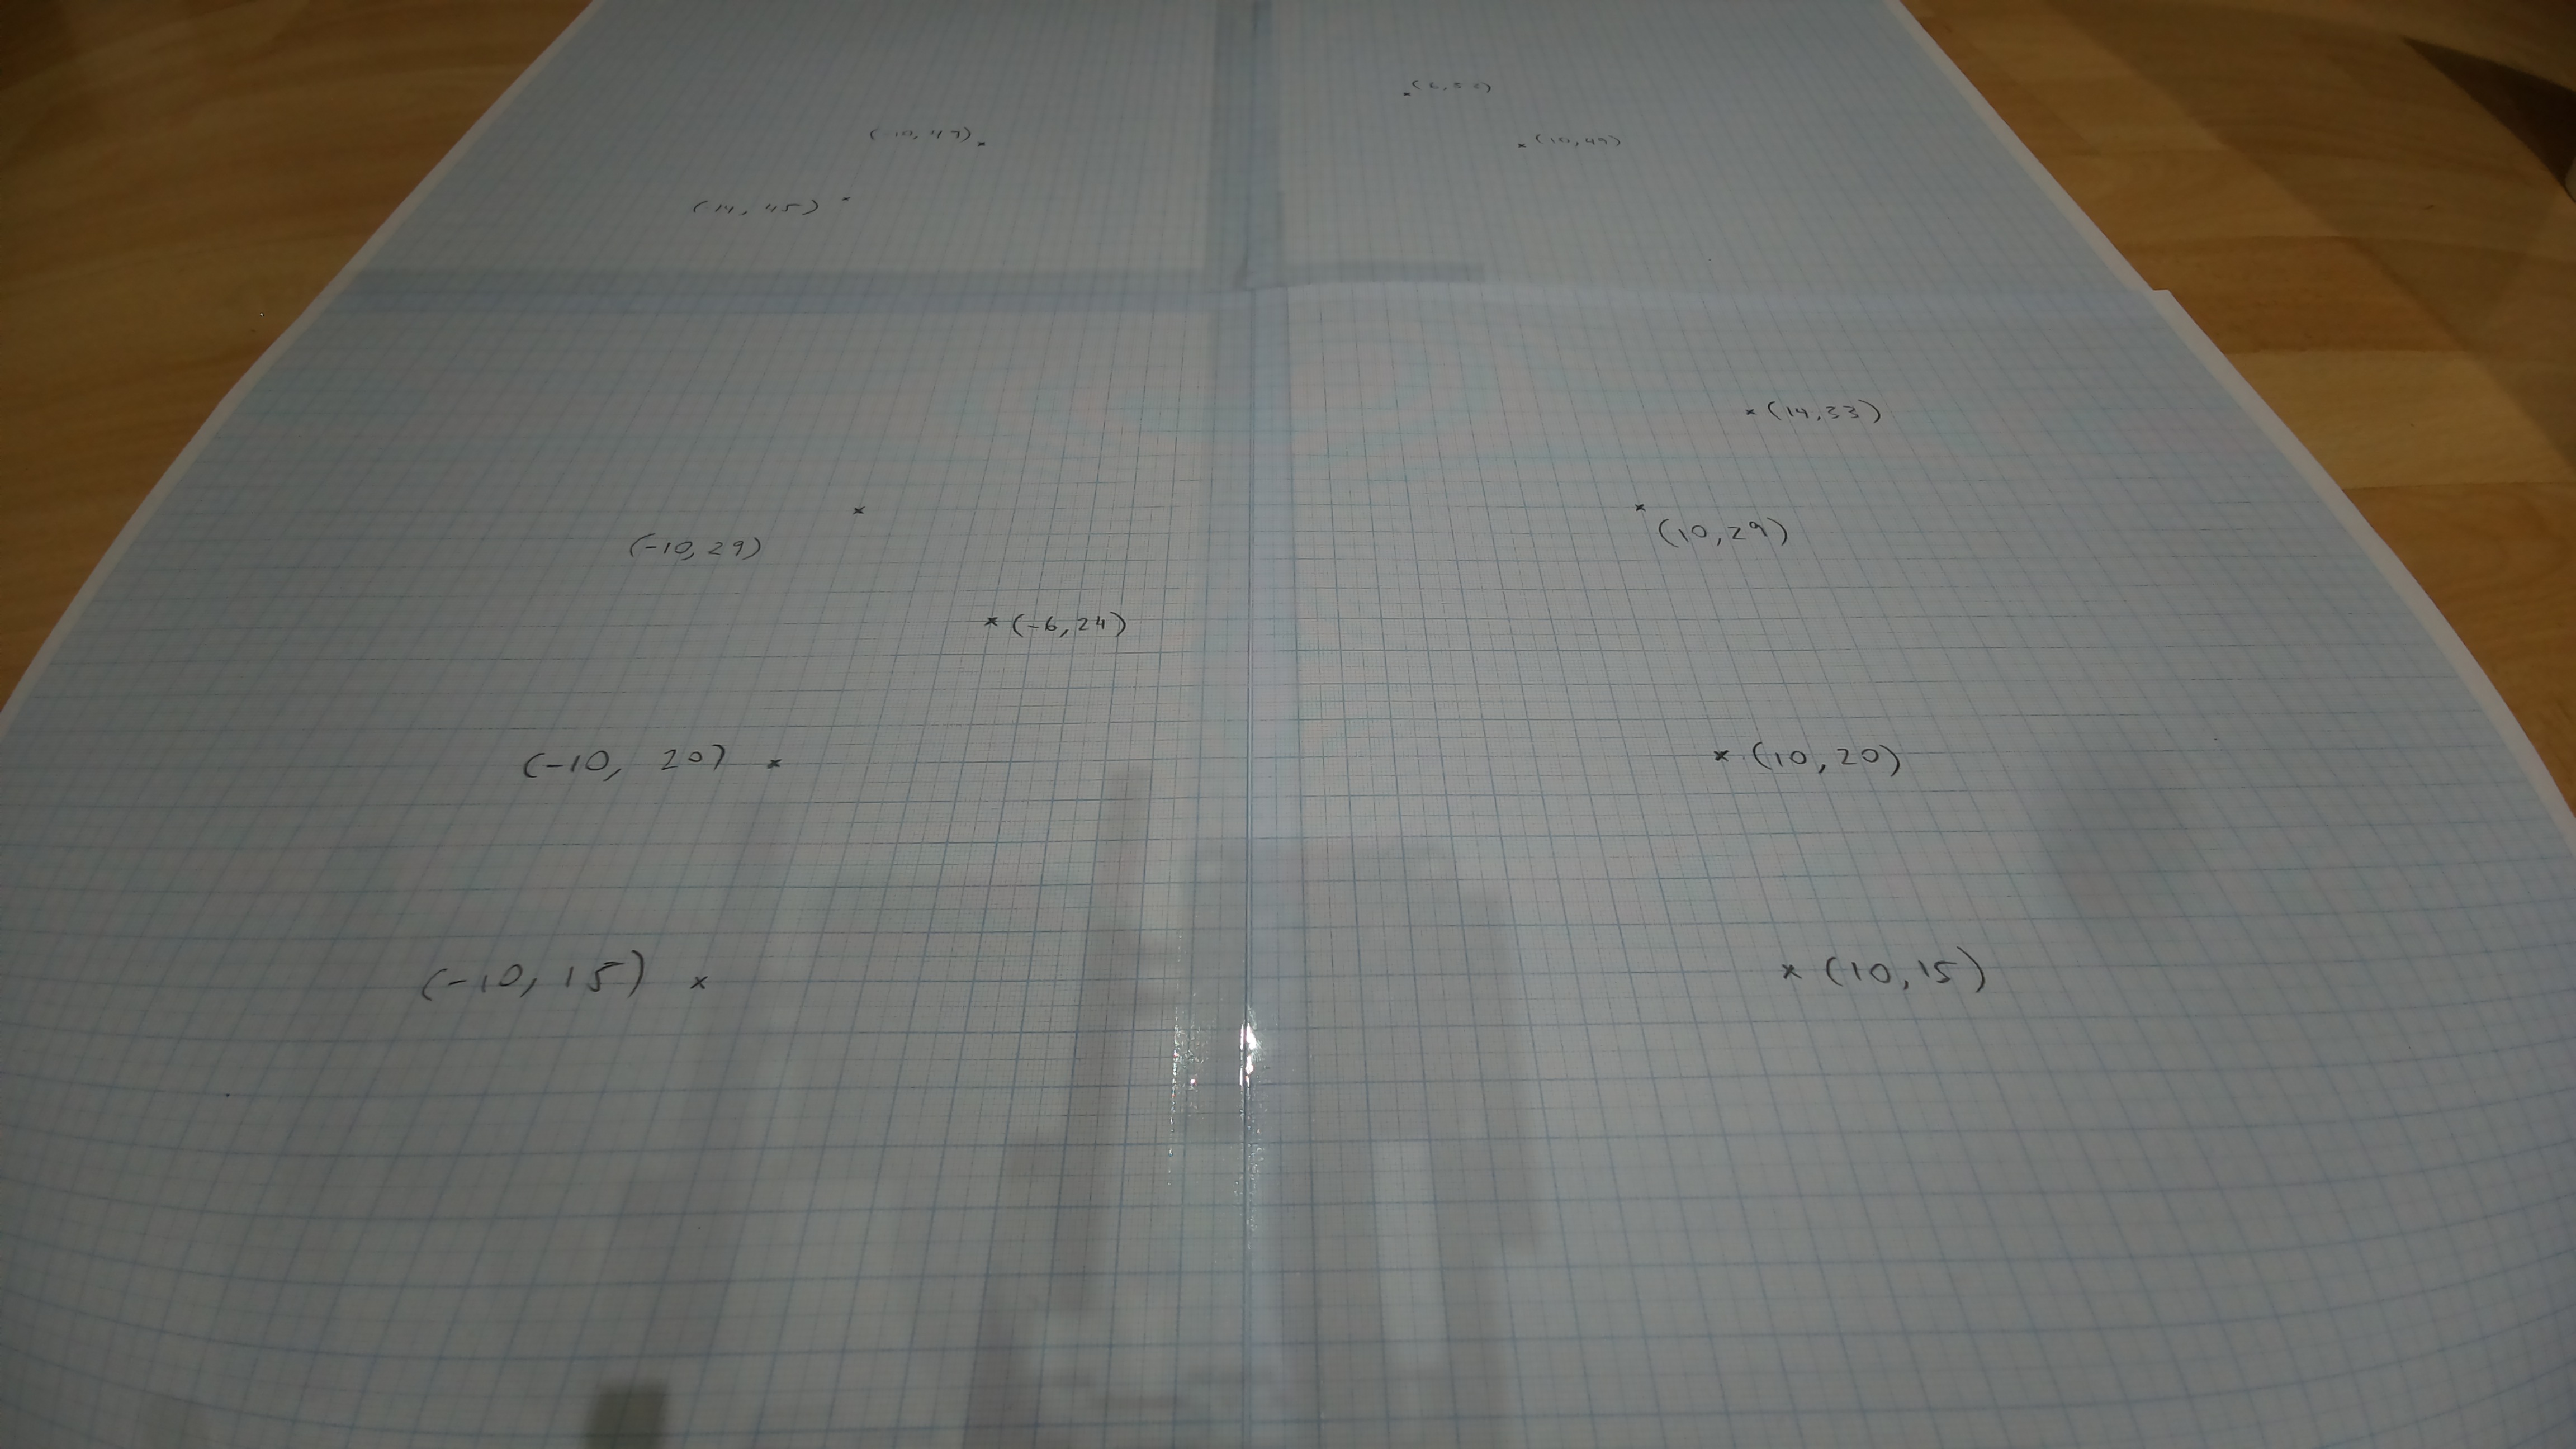 (6,52)
(-10,49)
(10,49)
(-14,45)
(14,33)
(-10,29)
(10,29)
(-6,24)
(-10, 20)
(10,20)
(-10,15)
(10,15)